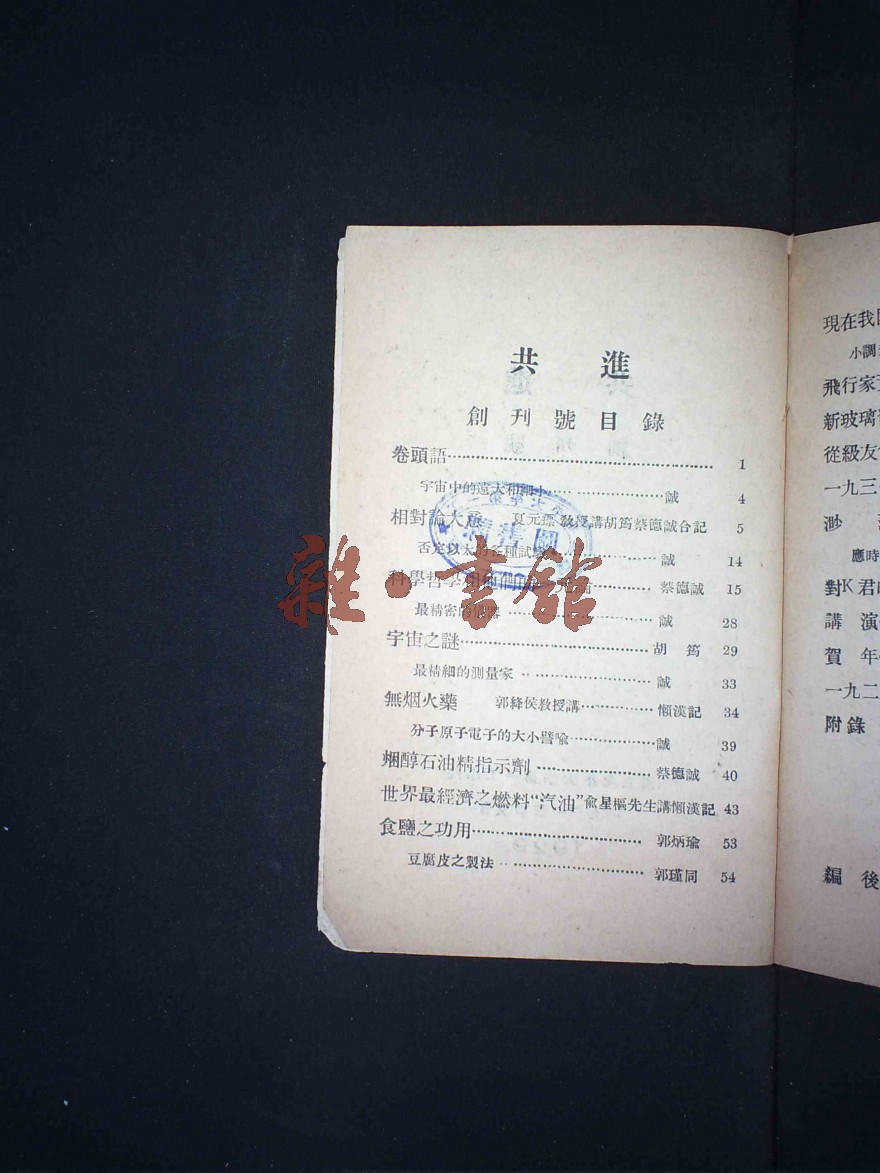 共進
創刊號目錄
卷頭語 1
宇宙中的遠大和細小 誠 4
相對論大意 夏元瑮教授講胡筠蔡德誠合記 5
否定以太的各種試驗 誠 14
科學哲學 蔡德誠 15
最精密的儀器 誠 28
宇宙之謎 胡筠 29
最精細的測量家 誠 33
無烟火藥 郭絳侯教授講 懶漢記 34
分子原子電子的大小譬喻 誠 39
石油精指示劑 蔡德誠 40
世界最經濟之燃料“汽油” 俞星樞先生講懶漢記 43
食鹽之功用 郭炳瑜 53
豆腐皮之製法 郭瑾同 54
現在我
小調
飛行家
新玻璃
從級友
一九三
渺
應時
對K君
講演
賀年
一九二
附錄
編後
雜·書館